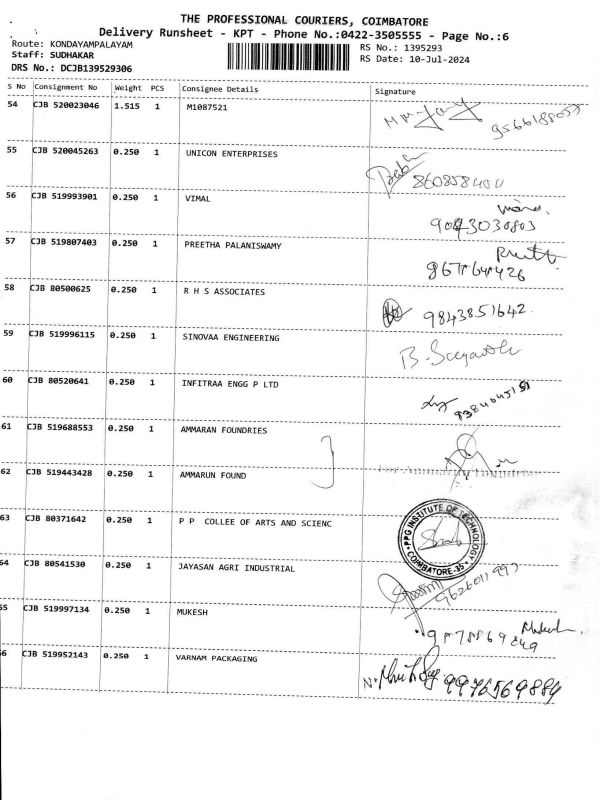 THE PROFESSIONAL COURIERS, COIMBATORE
Delivery Runsheet - KPT - Phone No.:0422-3505555 - Page No.:6
Route: KONDAYAMPALAYAM
Staff: SUDHAKAR
DRS No.: DCJB139529306
RS No.: 1395293
RS Date: 10-Jul-2024
S No Consignment No Weight PCS Consignee Details Signature
54 CJB 520023046 1.515 1 M1087521
55 CJB 520045263 0.250 1 UNICON ENTERPRISES
56 CJB 519993901 0.250 1 VIMAL
9043030803
57 CJB 519807403 0.250 1 PREETHA PALANISWAMY
58 CJB 80500625 0.250 1 R H S ASSOCIATES
9843851642
59 CJB 519996115 0.250 1 SINOVAA ENGINEERING
60 CJB 80520641 0.250 1 INFITRAA ENGG P LTD
61 CJB 519688553 0.250 1 AMMARAN FOUNDRIES
62 CJB 519443428 0.250 1 AMMARUN FOUND
63 CJB 80371642 0.250 1 P P COLLEE OF ARTS AND SCIENC
PPG INSTITUTE OF TECHNOLOGY
COIMBATORE-35
64 CJB 80541530 0.250 1 JAYASAN AGRI INDUSTRIAL
9626011993
55 CJB 519997134 0.250 1 MUKESH
56 CJB 519952143 0.250 1 VARNAM PACKAGING
9976569884